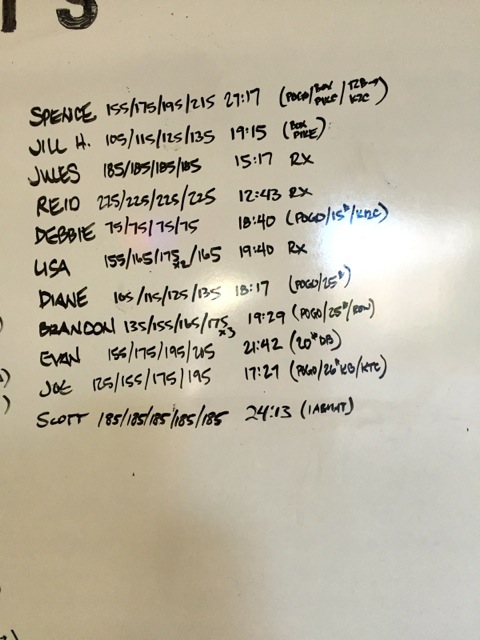 TS
SPENCE 155/175/195/215 27:17 (POGO/BOX PIKE/T2B→K2C)
JILL H. 105/115/125/135 19:15 (BOX PIKE)
JULES 185/185/185/185 15:17 RX
REID 225/225/225/225 12:43 RX
DEBBIE 75/75/75/75 18:40 (POGO/15#/K2C)
LISA 155/165/175x2/165 19:40 RX
DIANE 105/115/125/135 18:17 (POGO/25#)
BRANDON 135/155/165/175x3 19:29 (POGO/25#/ROW)
EVAN 155/175/195/215 21:42 (20# DB)
JOE 125/155/175/195 17:27 (POGO/26# KB/KTC)
SCOTT 185/185/185/185/185 24:13 (1 ABMAT)